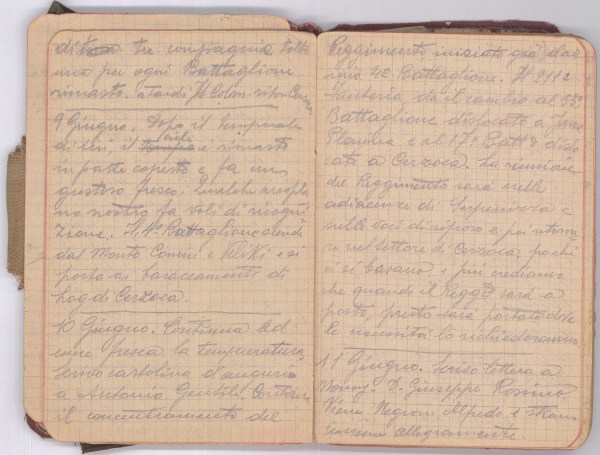 di tre compagnie tolte
una per ogni Battaglione
rimasto. a Tardi Il Colon. 
9 Giugno. Dopo il temporale
di ieri, il cielo è rimasto
in parte coperto e fa un
gustoso fresco. Qualche areopla
no nostro fa voli di ricogni
zione. Il 4º Battaglione scende
dal Monte Comun e Kliki e si
porta ai baraccamenti di
Log di Cerzoca.
10 Giugno. Continua ad
essere fresca la temperatura,
Scrivo cartolina d'augurio
a Antonio Gentile. Continua
il concentramento del
Reggimento iniziato già dal
mio 4º Battaglione. Il 211º
fanteria dà il cambio al 55º
Battaglione dislocato a
Planina e al 17º Battº dislo
cato a Cerzoca. La riunione
del Reggimento sarà nelle
adiacenze di Supenizza e
sulle voci di riposo e poi ritorna
re nel settore di Cerzoca, pochi
ci si basano e più crediamo
che quando il Reggtº sarà a
posto, presto sarà portato dove
le necessità lo richiederanno.
11 Giugno. Scrivo lettera a
D. Giuseppe
Viene Negroni Alfredo e
allegramente.